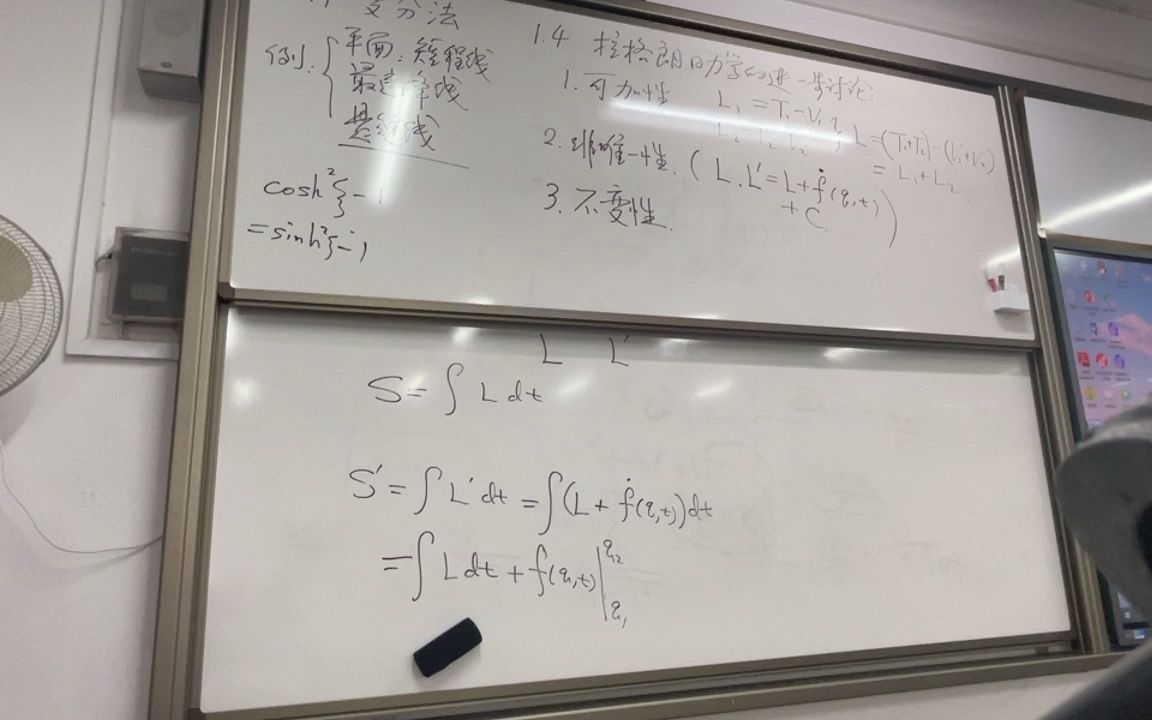 变分法
例: { 平面: 短程线
最速降线
悬链线
cosh²ξ-1
=sinh²ξ-1
1.4 拉格朗日力学的进一步讨论
1. 可加性 L₁=T₁-V₁
L₂=T₂-V₂ } L=(T₁+T₂)-(V₁+V₂)
= L₁+L₂
2. 非唯一性. ( L, L'=L+ḟ(q,t)
+C )
3. 不变性.
L L'
S=∫ L dt
S'=∫L'dt=∫(L+ḟ(q,t))dt
=∫Ldt+f(q,t)|q₂
q₁